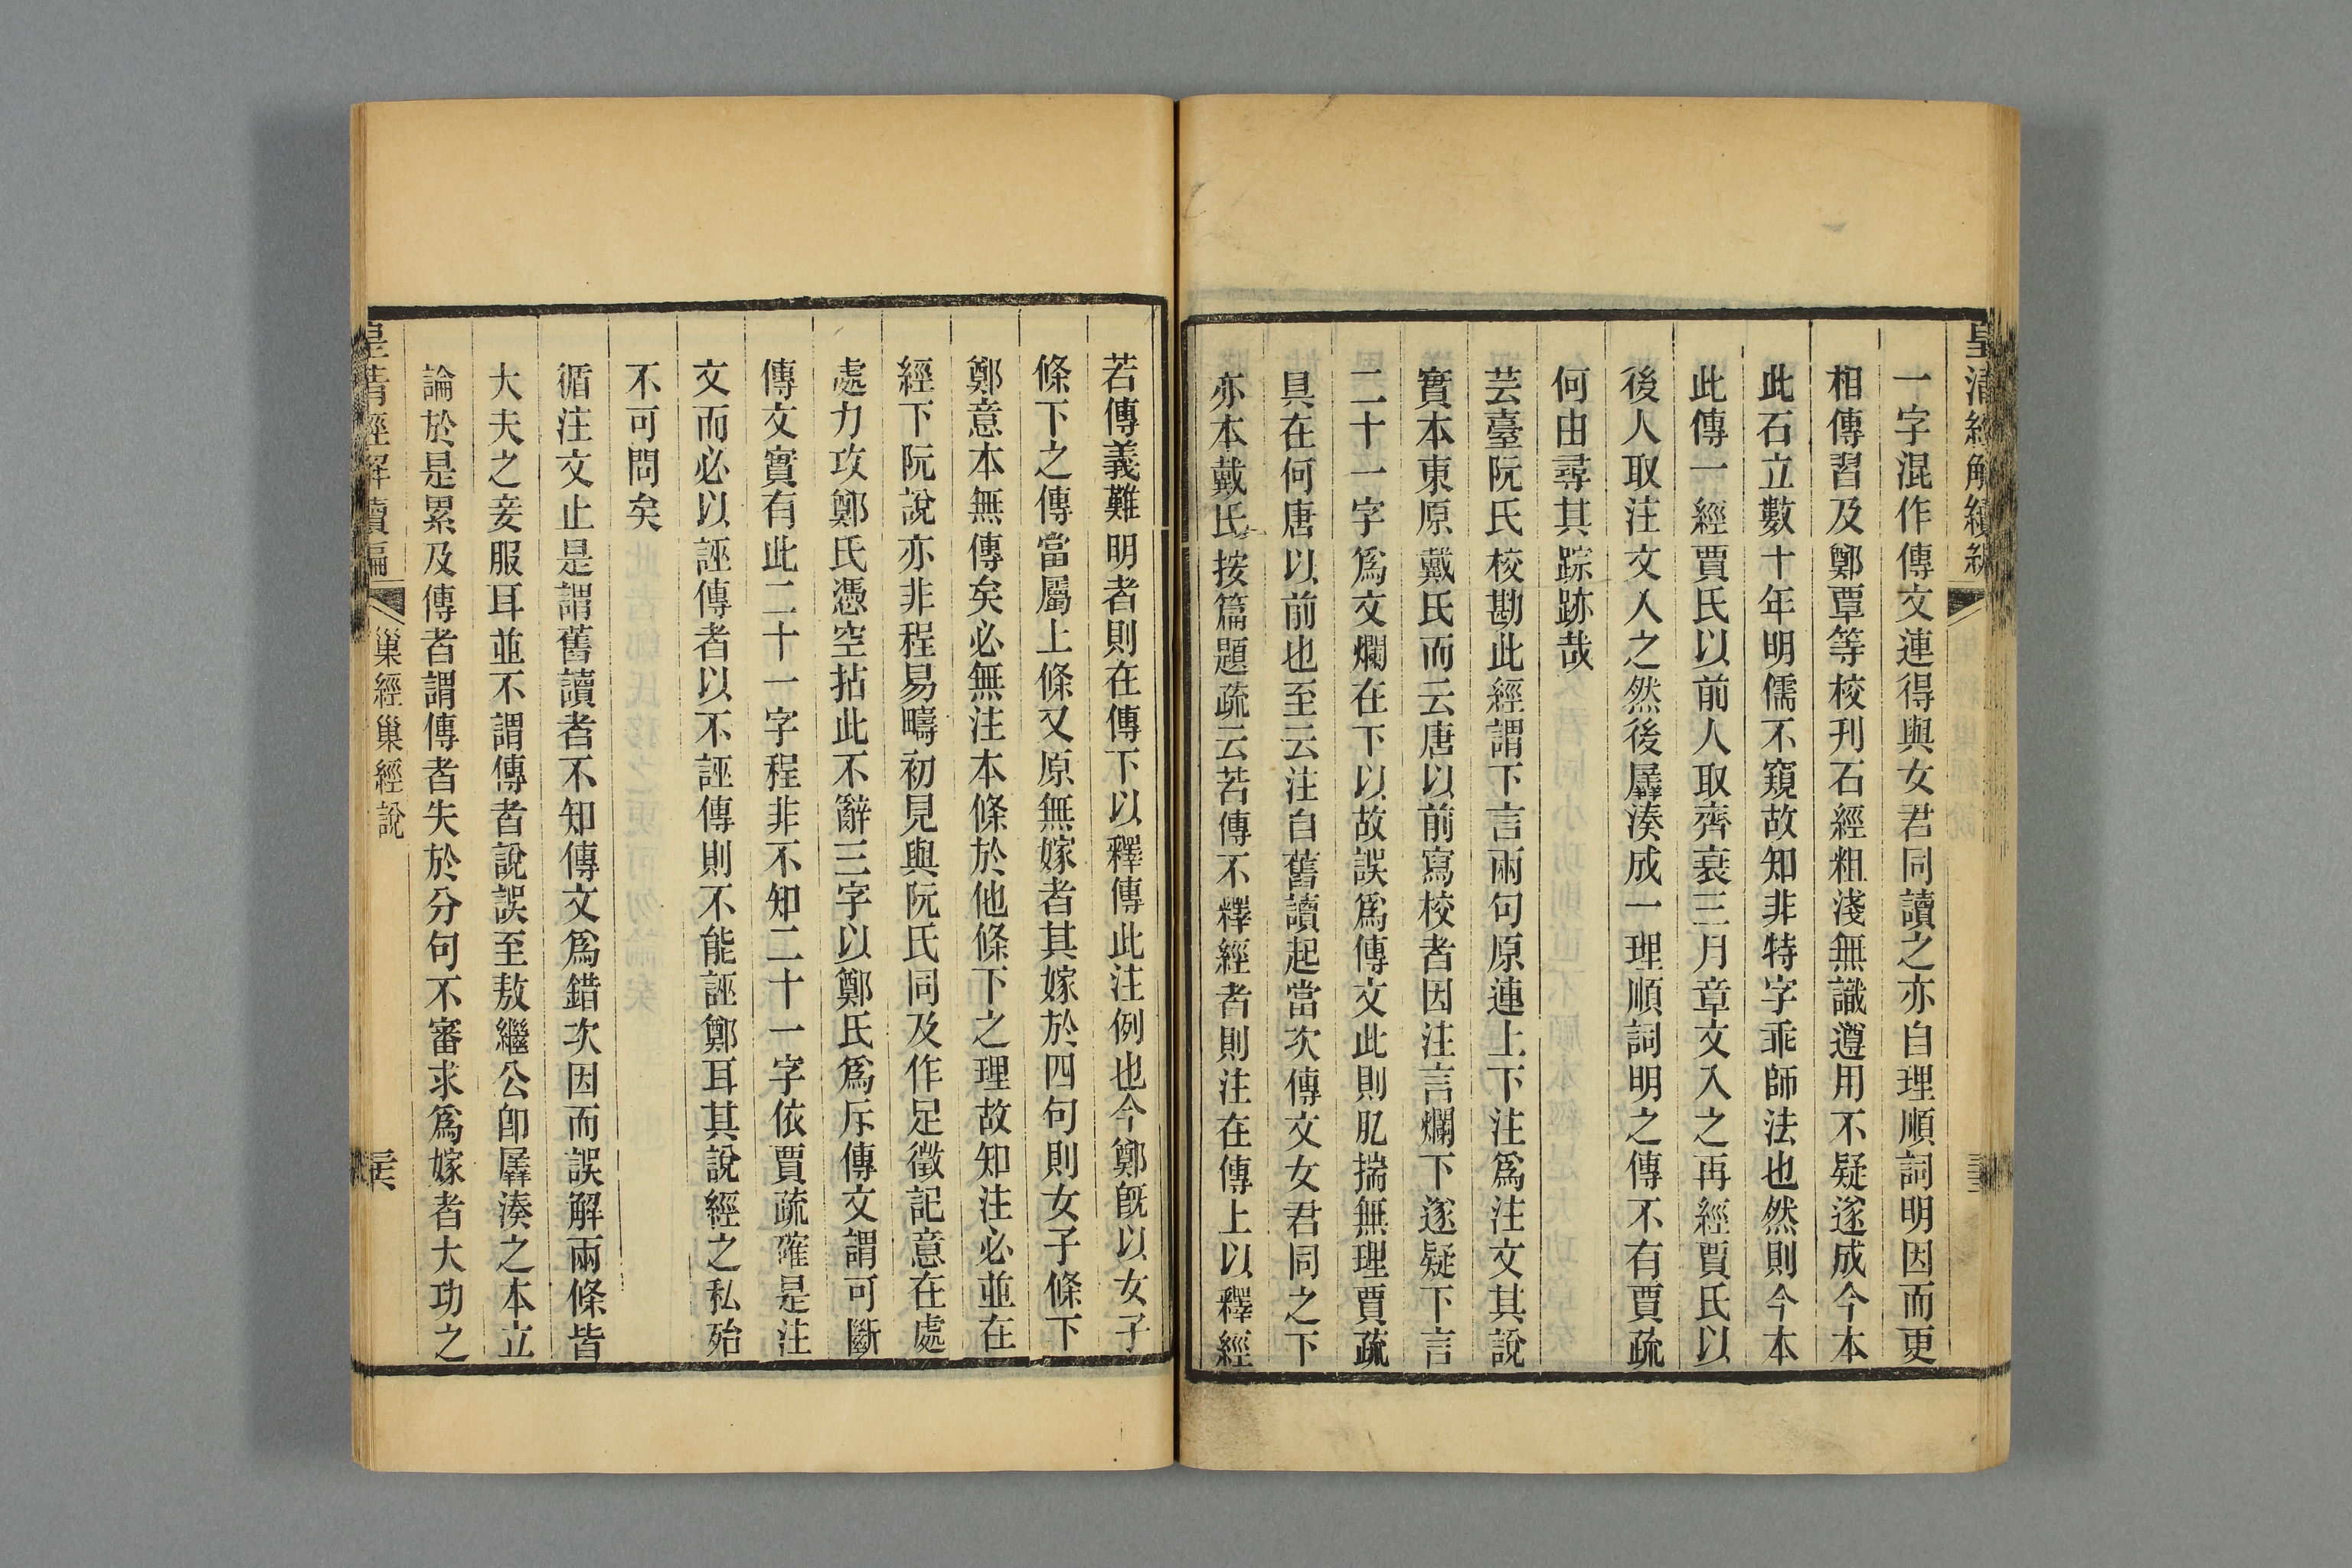 皇清經解續編
一字混作傳文連得與女君同讀之亦自理順詞明因而更
相傳習及鄭覃等校刊石經粗淺無識遵用不疑遂成今本
此石立數十年明儒不窺故知非特字乖師法也然則今本
此傳一經賈氏以前人取齊衰三月章文入之再經賈氏以
後人取注文入之然後羼湊成一理順詞明之傳不有賈疏
何由尋其踪跡哉
芸臺阮氏校勘此經謂下言兩句原連上下注爲注文其說
實本東原戴氏而云唐以前寫校者因注言爛下遂疑下言
二十一字爲文爛在下以故誤爲傳文此則肊揣無理賈疏
具在何唐以前也至云注自舊讀起當次傳文女君同之下
亦本戴氏按篇題疏云若傳不釋經者則注在傳上以釋經
若傳義難明者則在傳下以釋傳此注例也今鄭旣以女子
條下之傳當屬上條又原無嫁者其嫁於四句則女子條下
鄭意本無傳矣必無注本條於他條下之理故知注必並在
經下阮說亦非程易疇初見與阮氏同及作足徵記意在處
處力攻鄭氏憑空拈此不辭三字以鄭氏爲斥傳文謂可斷
傳文實有此二十一字程非不知二十一字依賈疏確是注
文而必以誣傳者以不誣傳則不能誣鄭耳其說經之私殆
不可問矣
循注文止是謂舊讀者不知傳文爲錯次因而誤解兩條皆
大夫之妾服耳並不謂傳者說誤至敖繼公卽羼湊之本立
論於是累及傳者謂傳者失於分句不審求爲嫁者大功之
皇清經解續編
巢經巢經說